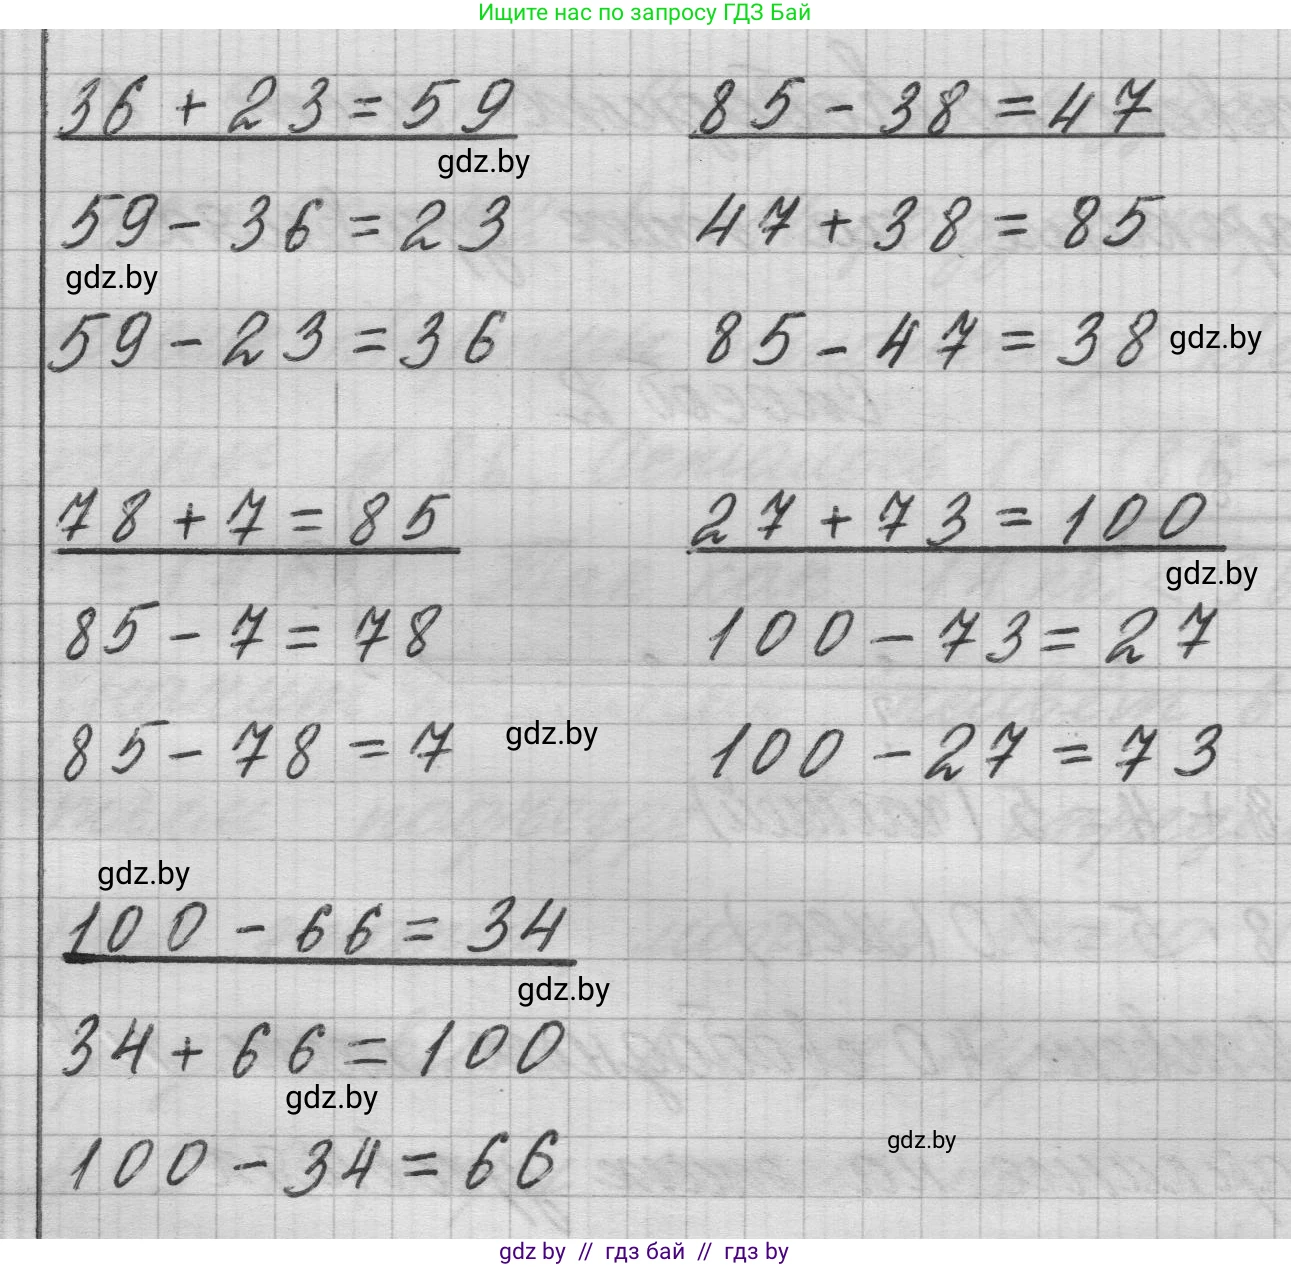 Ищите нас по запросу ГДЗ Бай
36 + 23 = 59
gdz.by
59 - 36 = 23
gdz.by
59 - 23 = 36
85 - 38 = 47
47 + 38 = 85
85 - 47 = 38 gdz.by
78 + 7 = 85
85 - 7 = 78
85 - 78 = 7 gdz.by
27 + 73 = 100
gdz.by
100 - 73 = 27
100 - 27 = 73
gdz.by
100 - 66 = 34
gdz.by
34 + 66 = 100
gdz.by
100 - 34 = 66
gdz.by
gdz by // гдз бай // гдз by